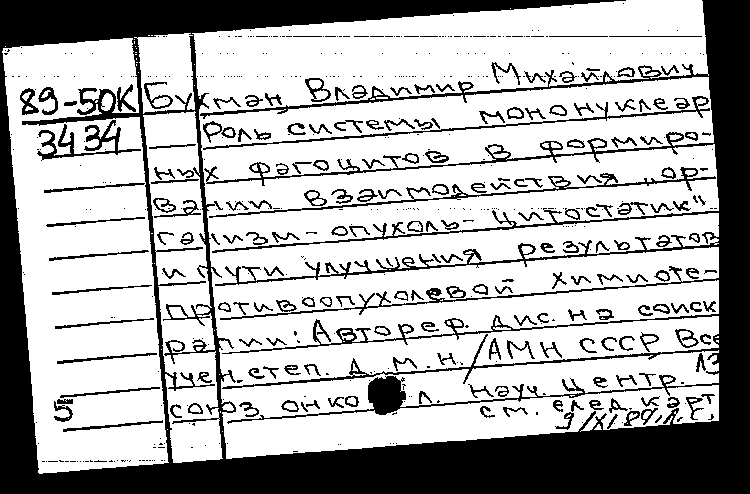 89-50К Бухман, Владимир Михайлович
3434 Роль системы мононуклеар
ных фагоцитов в формиро-
вании взаимодействия „ор-
ганизм-опухоль-цитостатик"
и пути улучшения результатов
противоопухолевой химиоте-
рапии: Автореф. дис. на соиск
учен. степ. д. м. н. / АМН СССР Все
союз. онкол. науч. центр.
5 см. след. карт